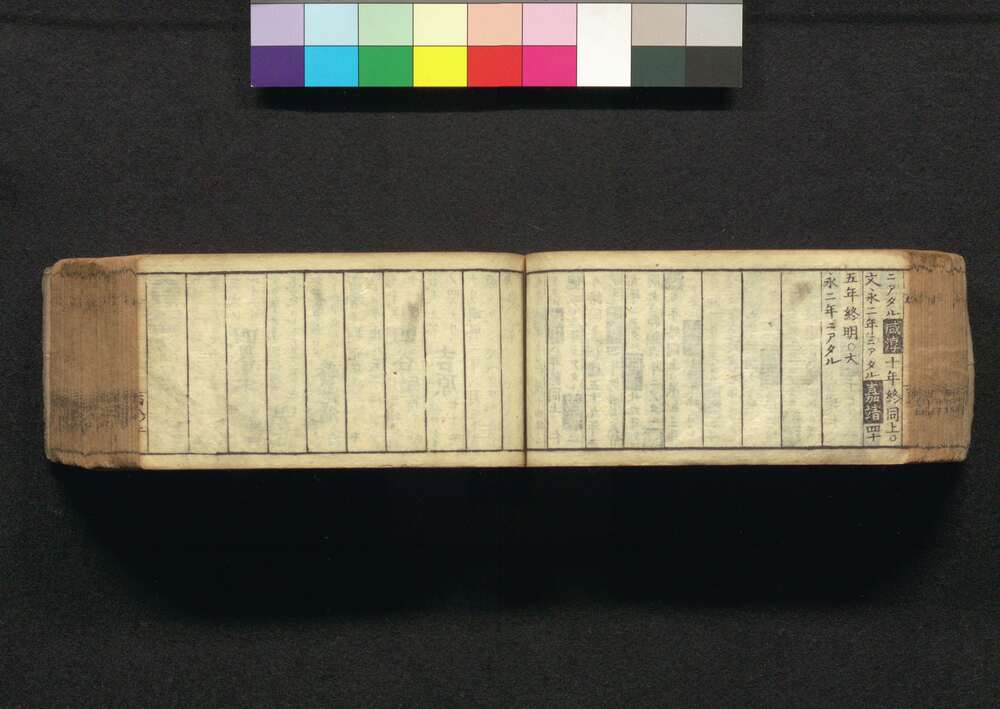 ニアタル咸淳十年終同上○
文永二年ニアタル嘉靖四十
五年終明○大
永二年ニアタル